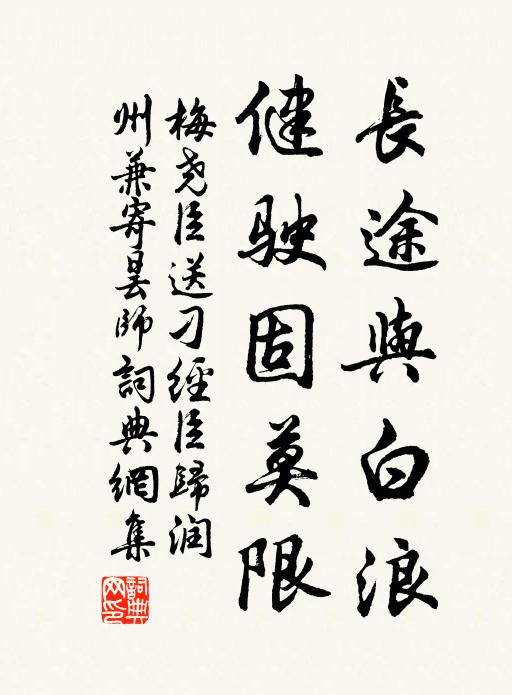 長途與白浪
健駛固莫限
梅尧臣送刁經臣歸润
州兼寄昙師詞典網集
詞典網印